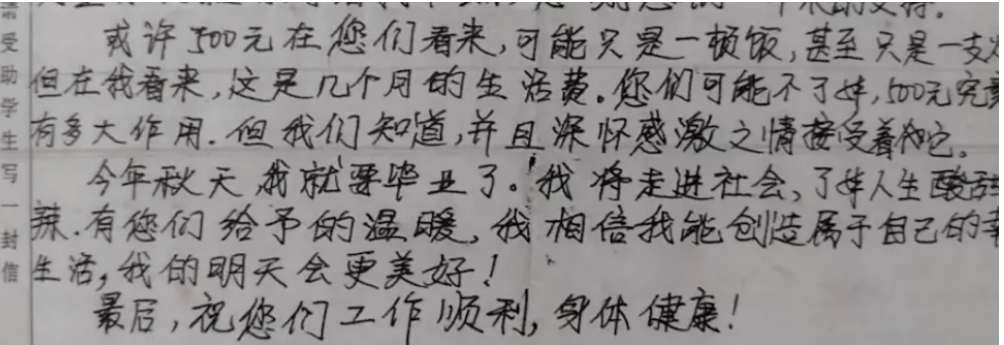 受助学生写一封信
或许500元在您们看来,可能只是一顿饭,甚至只是一支
但在我看来,这是几个月的生活费。您们可能不了解,500元究竟
有多大作用.但我们知道,并且深怀感激之情接受着它。
今年秋天我就要毕业了。我将走进社会,了解人生酸甜
辣.有您们给予的温暖,我相信我能创造属于自己的幸
生活,我的明天会更美好!
最后,祝您们工作顺利,身体健康!